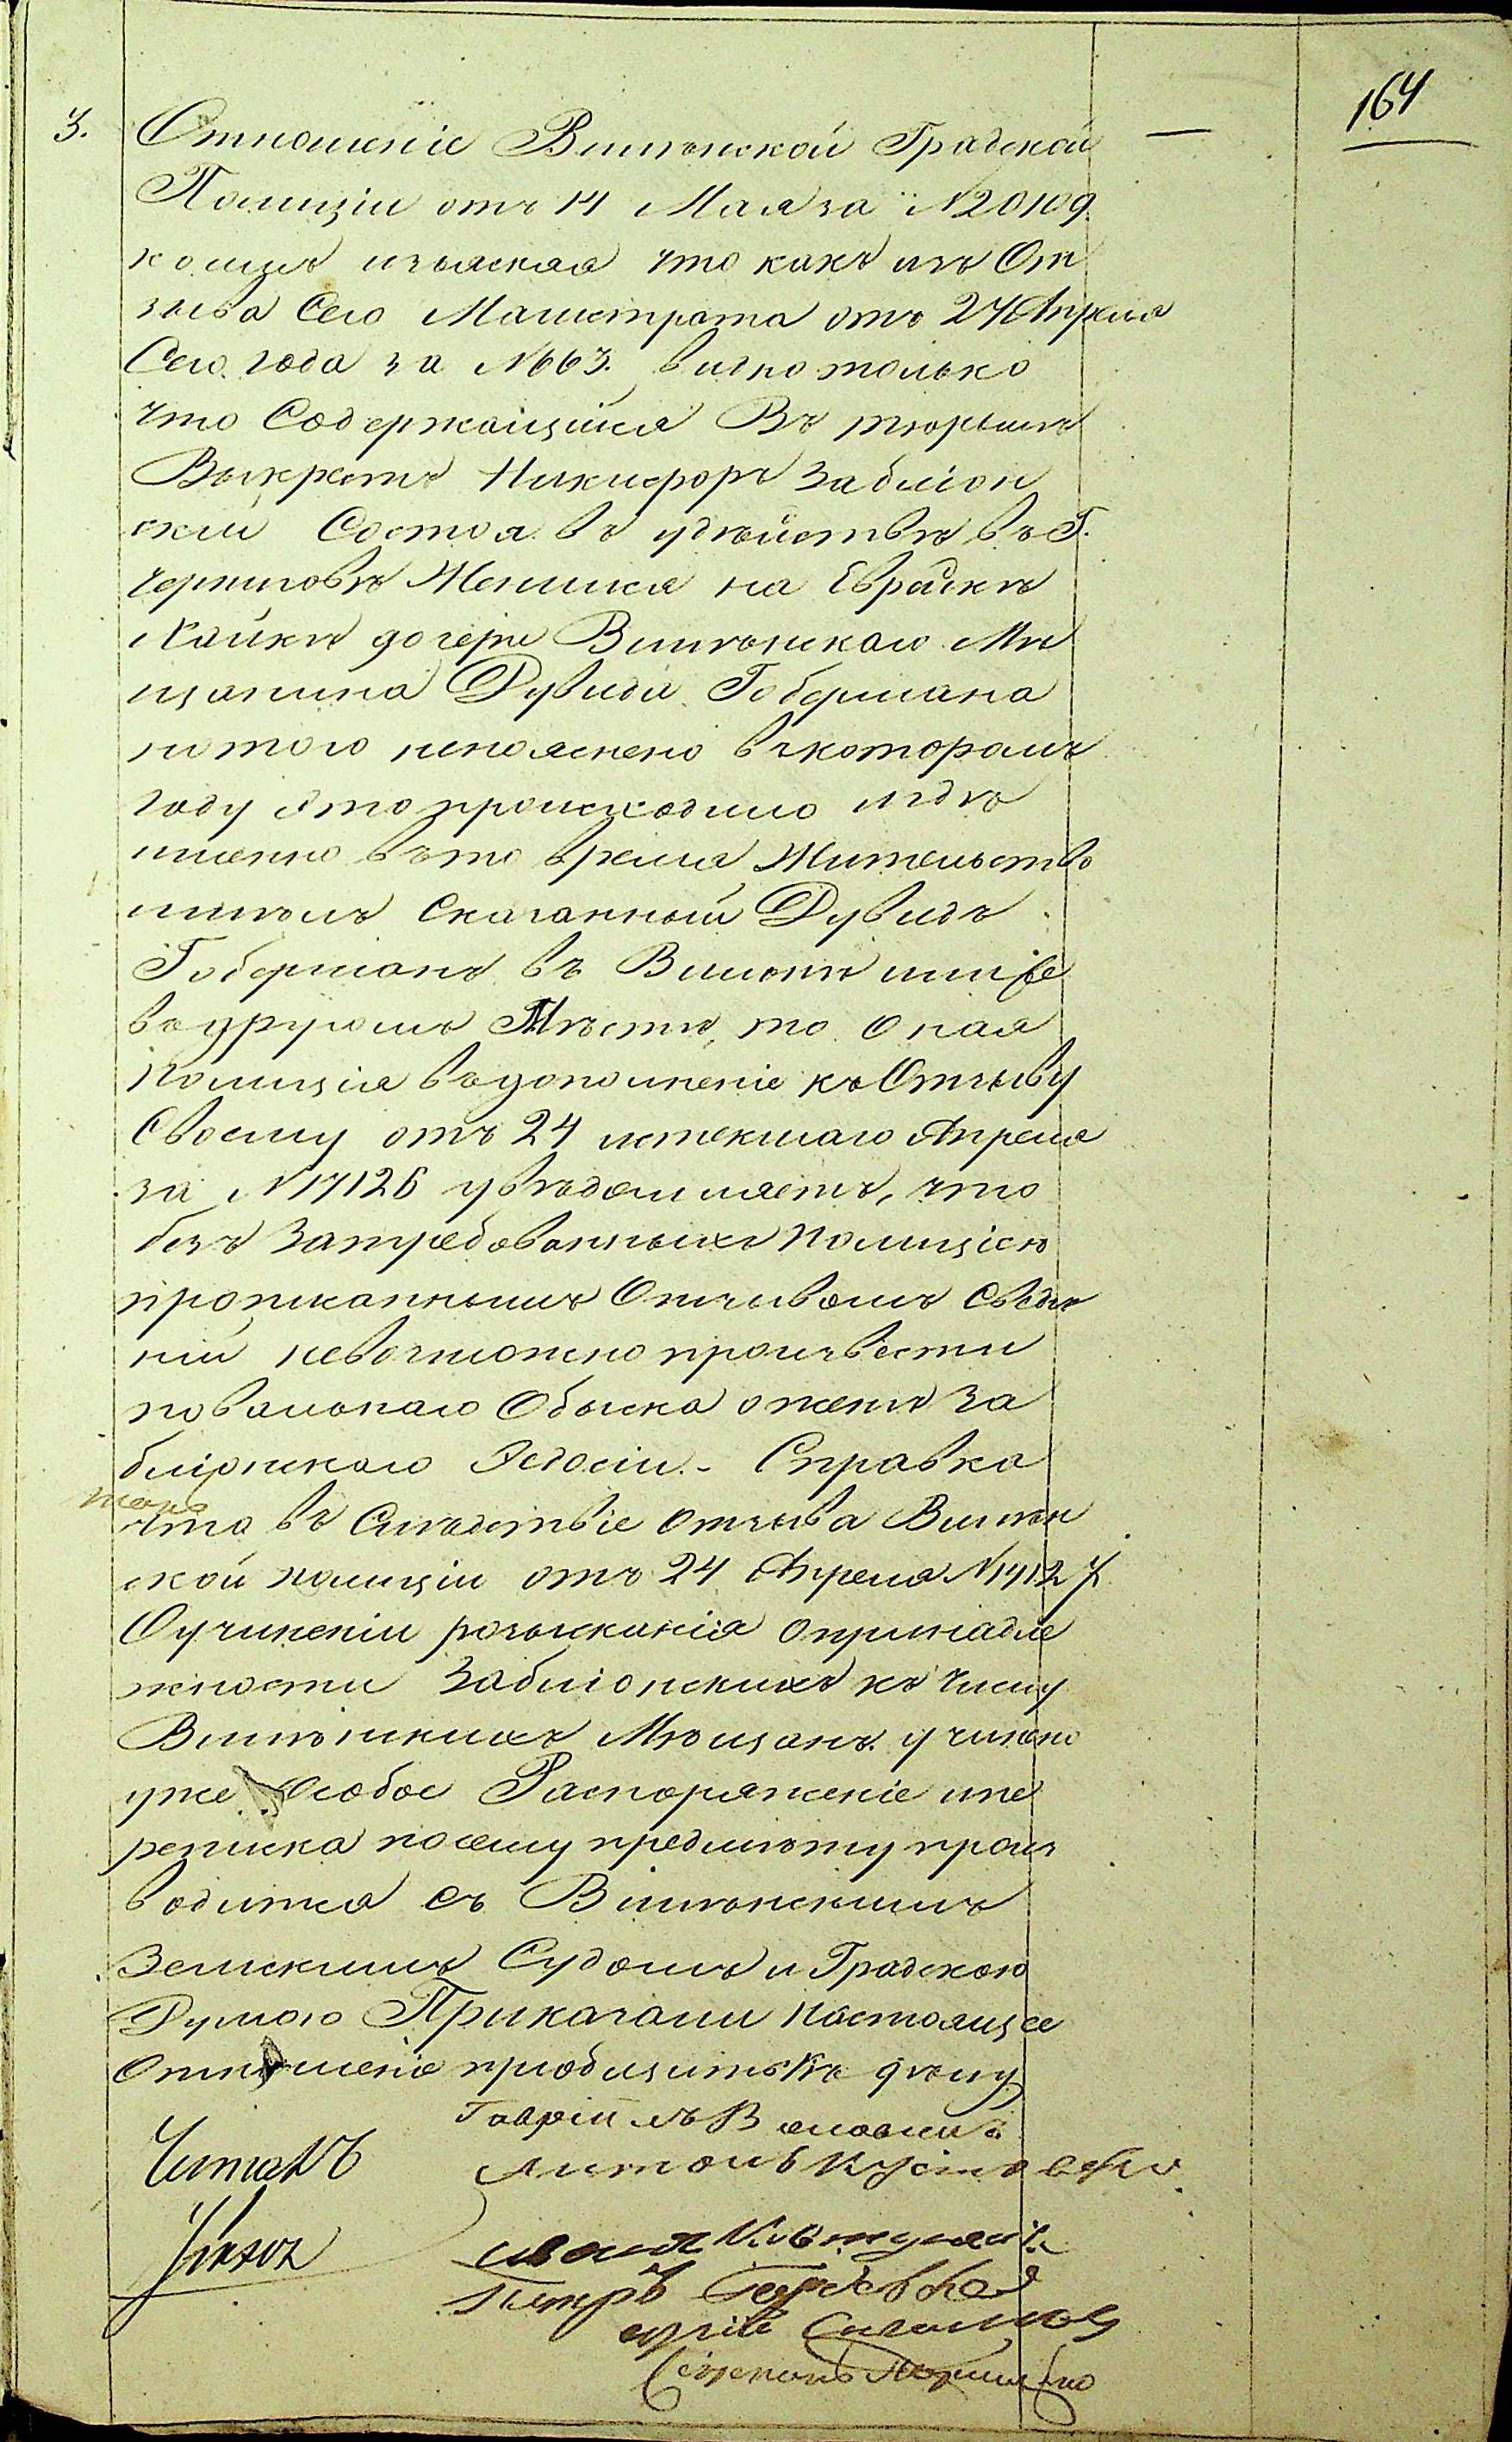 164
3. Отношеніе Виленской Градской
Полиціи отъ 14 Мая за № 20109.
коимъ изъясняя что какъ изъ От
зыва Сего Магистрата отъ 27 Апреля
Сего года за № 663. видно только
что Содержащійся Въ тюрьмѣ
Выкрестъ Никифоръ Забліон
скій Состоя въ удѣйствѣ въ Г.
Черниговѣ Женился на Еврейкѣ
Хайкѣ дочери Виленскаго Мѣ
щанина Дувида Гобермана
но того непояснено въ которомъ
году это происходило и гдѣ
именно въ то время Жительство
имѣлъ Сказанный Дувидъ
Гоберманъ въ Вильнѣ или же
въ другомъ Мѣстѣ, то Оная
Полиція въ дополненіе къ Отзыву
Своему отъ 24 истекшаго Апреля
за № 17126 увѣдомляетъ, что
безъ Затребованныхъ Полиціею
прописаннымъ Отзывомъ Сведѣ
ній невозможно произвести
повальнаго Обыска о женѣ За
бліонскаго Федосіи. - Справка
что въ Слѣдствіе отзыва Вилен
ской полиціи отъ 24 Апреля № 17127
О учиненіи розысканія о принадле
жности Забліонскихъ къ Числу
Виленскихъ Мѣщанъ учинено
уже Особое Распоряженіе и пе
реписка по сему предмѣту произ
водится съ Виленскимъ
Земскимъ Судомъ и Градскою
Думою Приказали Настоящее
Отношеніе пріобщить къ дѣлу
Гаврійлъ
Читалъ Антонъ
Иванъ
Петръ
Степанъ